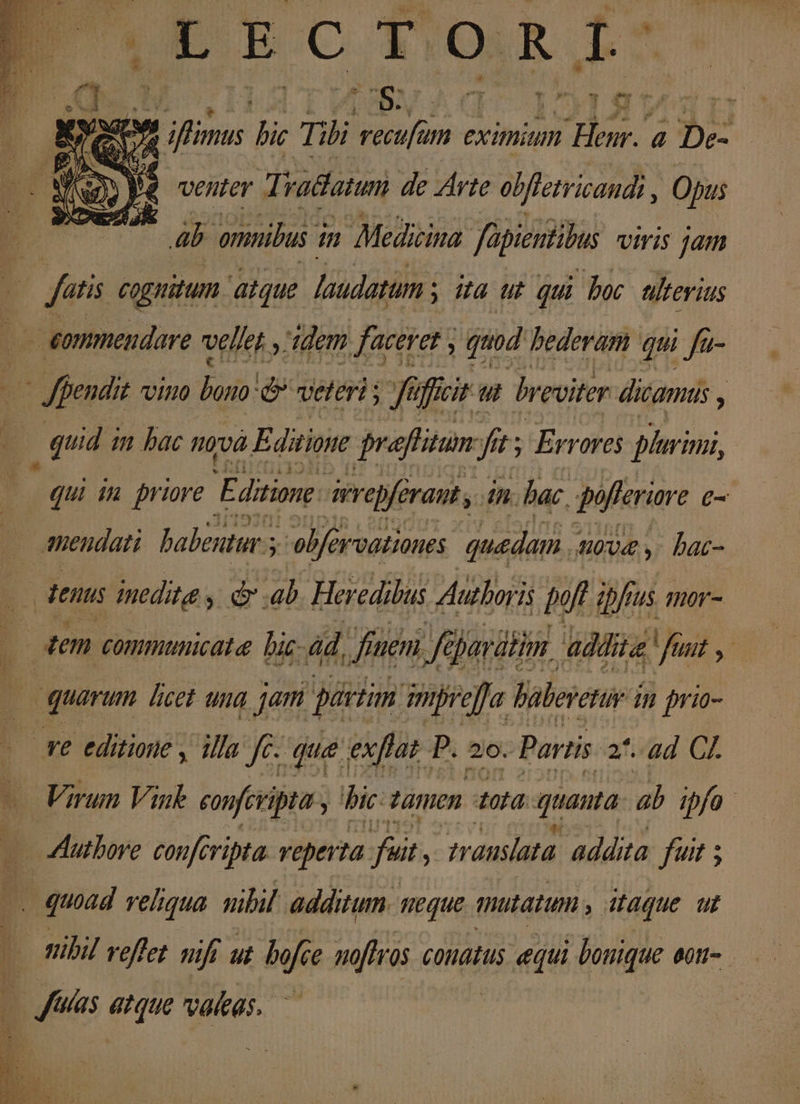 LECTORI
S.
iſtimus hic Tibi recuſum eximium Henr. a De-
venter Tractatum de Arte obſtetricandi, Opus
ab omnibus in Medicina ſapientibus viris jam
ſatis cognitum atque laudatum; ita ut qui hoc ulterius
commendare vellet, idem faceret, quod hederam qui ſu-
ſpendit vino bono & veteri; ſufficit ut breviter dicamus,
quid in hac nova Editione præſtitum ſit; Errores plurimi,
qui in priore Editione irrepſerant, in hac poſteriore e-
mendati habentur; obſervationes quædam novæ, hac-
tenus ineditæ, & ab Heredibus Authoris poſt ipſius mor-
tem communicatæ hic ad finem ſeparatim additæ ſunt,
quarum licet una jam partim impreſſa haberetur in prio-
re editione, illa ſc. quæ exſtat P. 20. Partis 2ᵃ. ad Cl.
Virum Vink conſcripta, hic tamen tota quanta ab ipſo
Authore conſcripta reperta fuit, translata addita fuit;
quoad reliqua nihil additum neque mutatum, itaque ut
nihil reſtet niſi ut hoſce noſtros conatus æqui bonique con-
ſulas atque valeas.